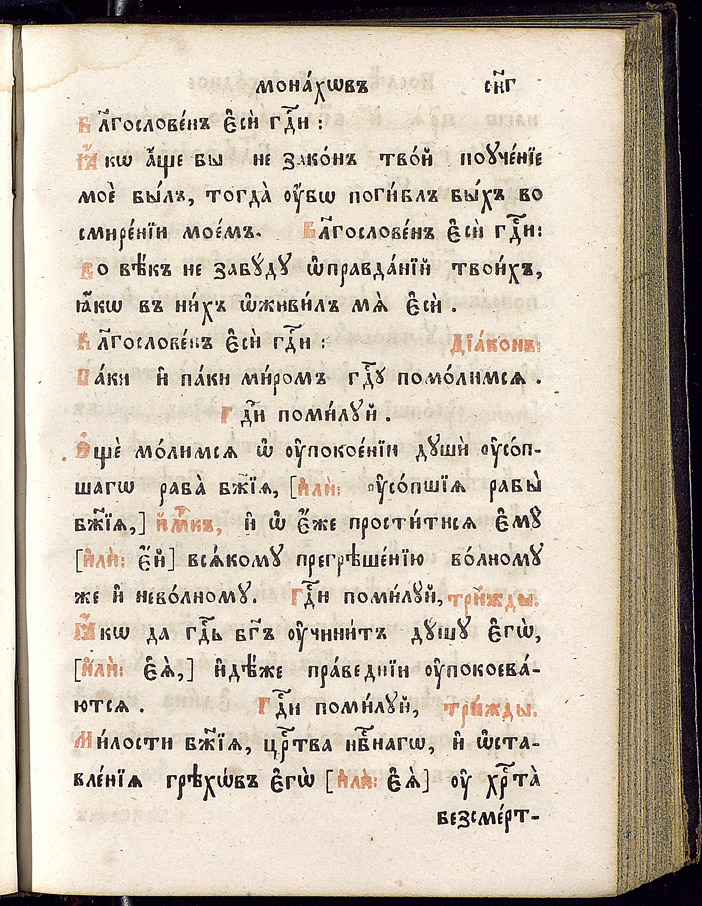 мона́хѡвъ сн҃г
Бл҃гослове́нъ є҆сѝ гдⷭ҇и :
Ꙗ҆́кѡ а҆́ще бы не зако́нъ тво́й поꙋче́нїе
моѐ бы́лъ, тогда̀ ᲂу҆́бѡ поги́блъ бы́хъ во
смире́нїи мое́мъ. Бл҃гослове́нъ є҆сѝ гдⷭ҇и:
Во вѣ́къ не забꙋ́дꙋ ѡ҆правда́нїй твои́хъ,
ꙗ҆́кѡ въ ни́хъ ѡ҆живи́лъ мѧ̀ є҆сѝ .
Бл҃гослове́нъ є҆сѝ гдⷭ҇и : Дїа́конъ:
Па́ки и҆ па́ки ми́ромъ гдⷭ҇ꙋ помо́лимсѧ .
Гдⷭ҇и поми́лꙋй .
Е҆щѐ мо́лимсѧ ѡ҆ ᲂу҆покое́нїи дꙋшѝ ᲂу҆со́п-
шагѡ раба̀ бж҃їѧ, [и҆лѝ: ᲂу҆со́пшїѧ рабы̀
бж҃їѧ,] и҆́м҃къ, и҆ ѡ҆ є҆́же прости́тисѧ є҆мꙋ̀
[и҆лѝ: є҆́й] всѧ́комꙋ прегрѣше́нїю во́лномꙋ
же и҆ нево́лномꙋ. Гдⷭ҇и поми́лꙋй, три́жды.
Ꙗ҆́кѡ да гдⷭ҇ь бг҃ъ ᲂу҆чини́тъ дꙋ́шꙋ є҆гѡ̀,
[и҆лѝ: є҆ѧ̀,] и҆дѣ́же пра́веднїи ᲂу҆покоева́-
ютсѧ . Гдⷭ҇и поми́лꙋй, три́жды.
Ми́лости бж҃їѧ, црⷭ҇тва нбⷭ҇нагѡ, и҆ ѡ҆ста-
вле́нїѧ грѣхѡ́въ є҆гѡ̀ [и҆лѝ: є҆ѧ̀] ᲂу҆ хрⷭ҇та̀
безсме́рт-